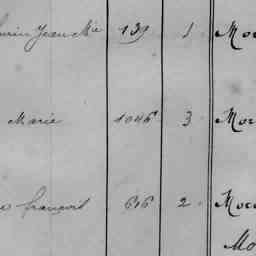 Jean Mie 139 1 Mor
Marie 1046 3 Mor
françois 616 2 Moc
Mo